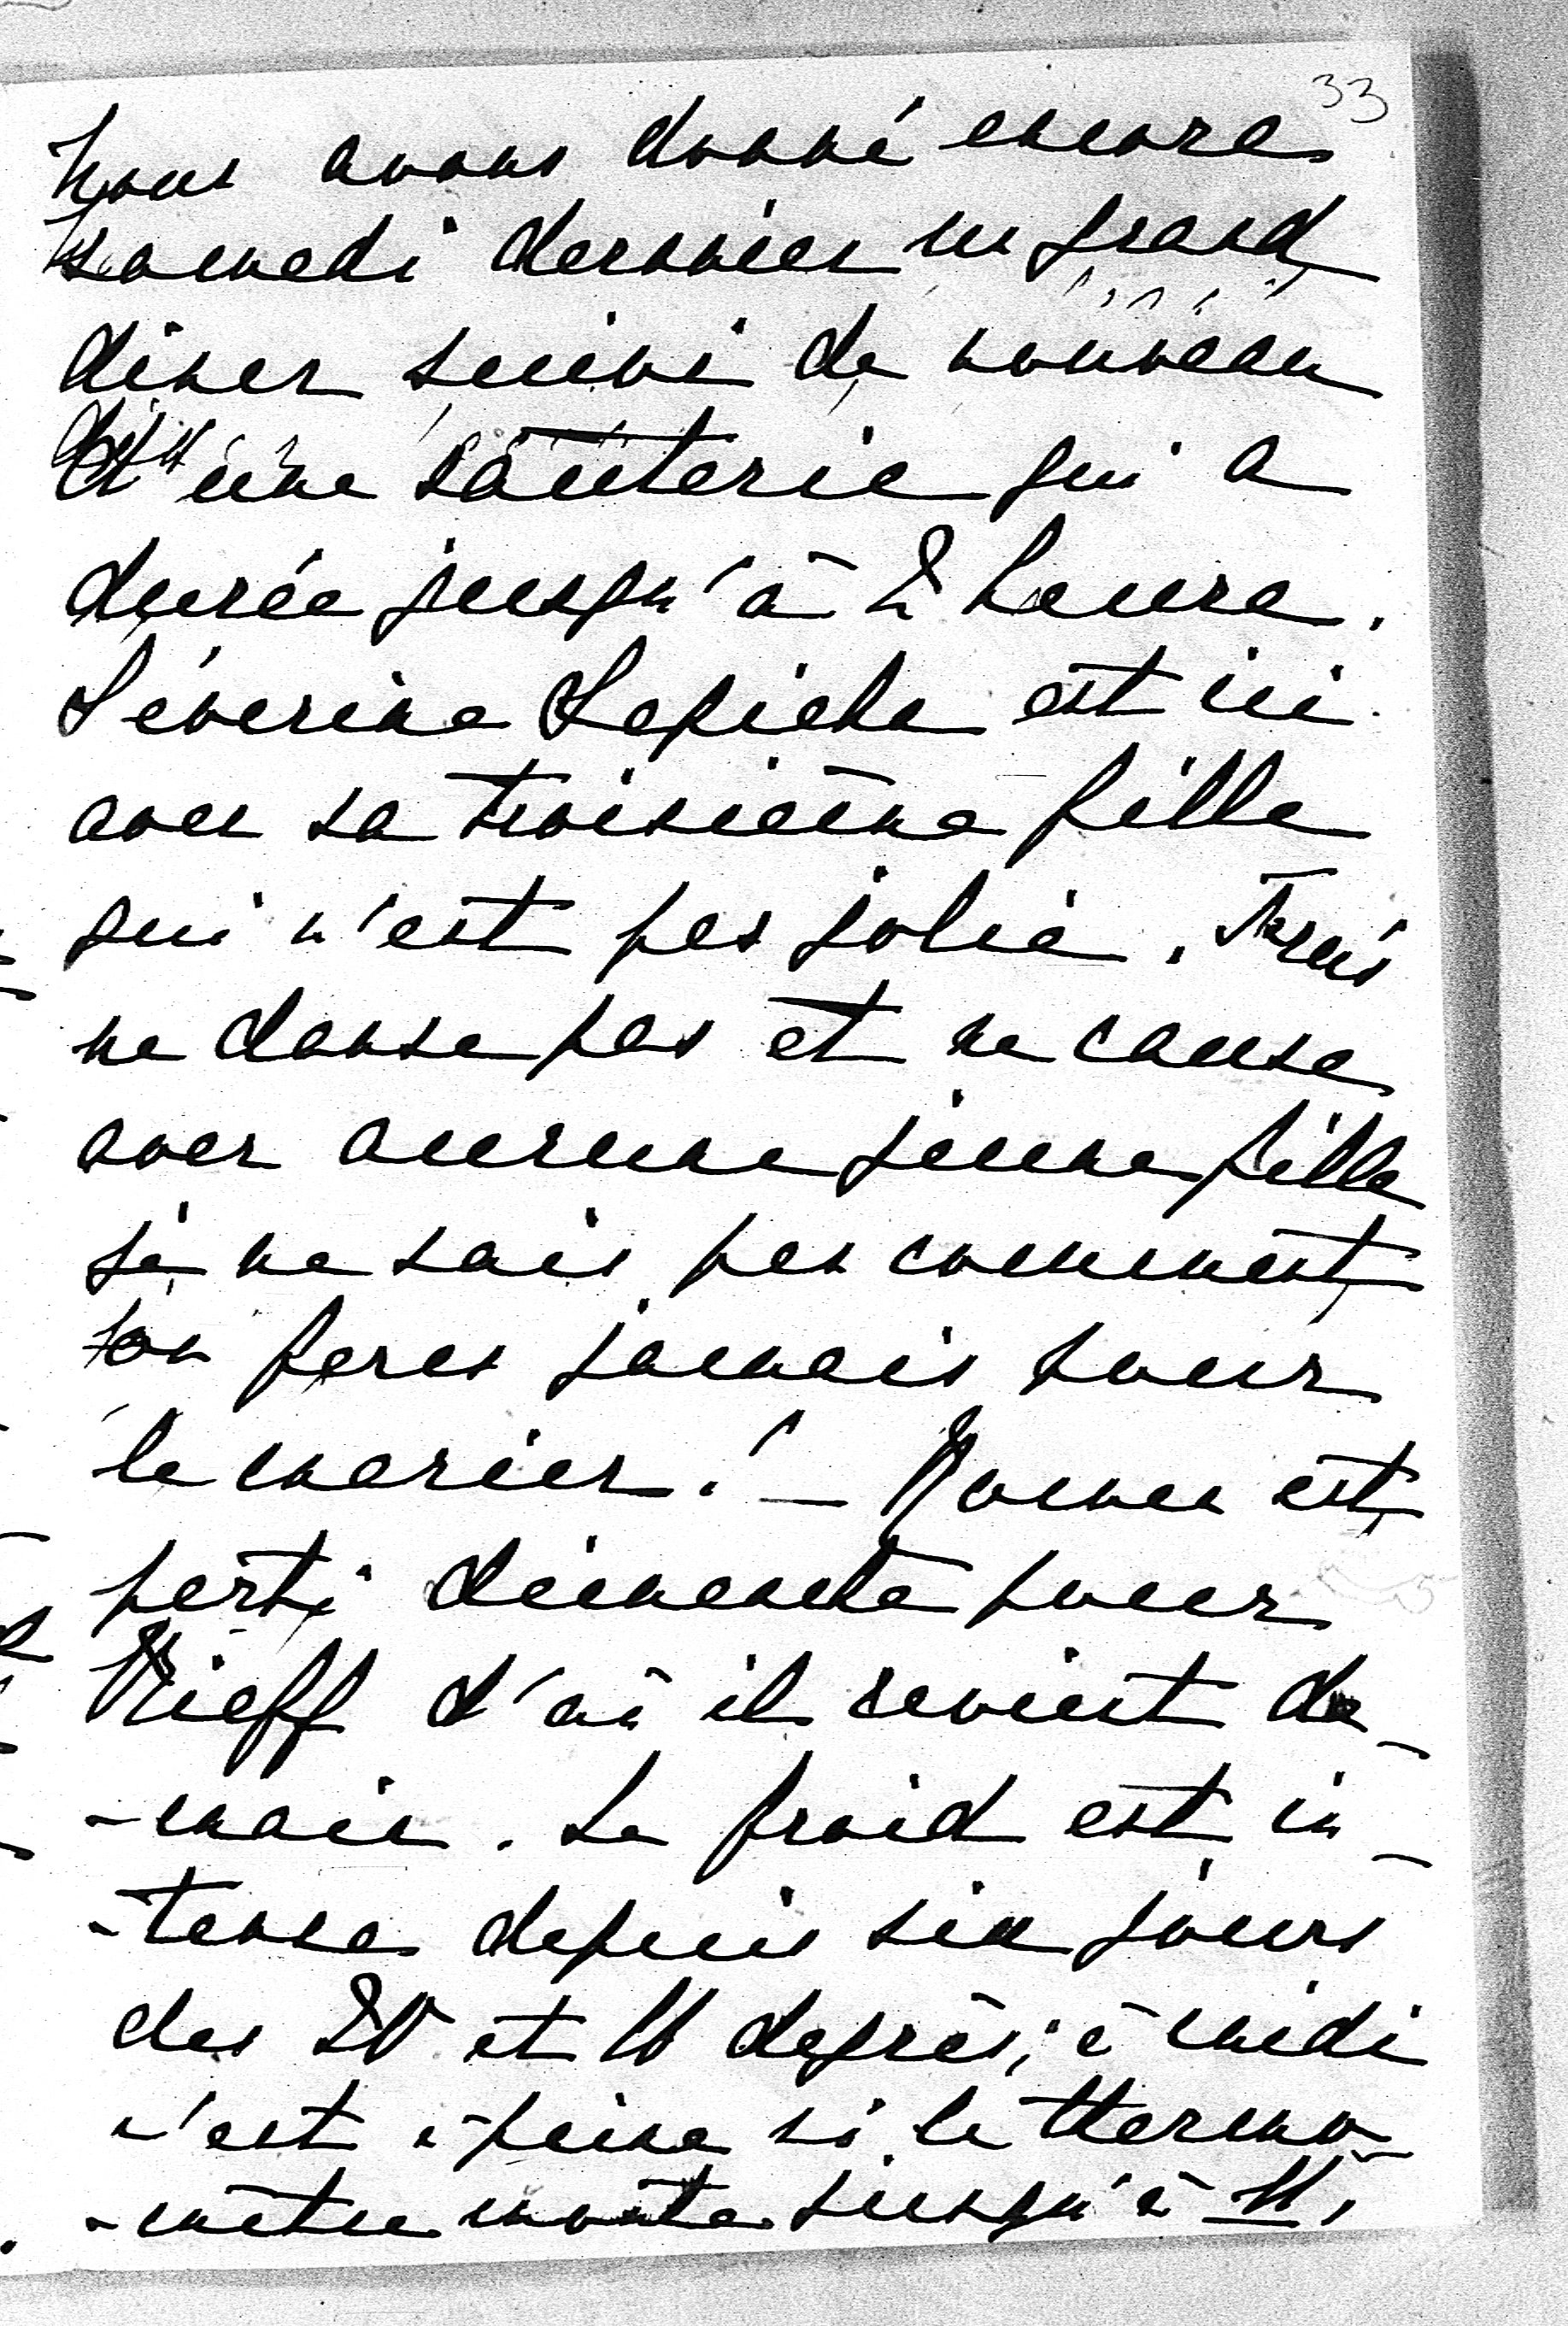 33
Nous avons donné encore
samedi dernier un grand
diner suivi de nouveau
d'une sauterie qui a
durée jusqu'à 2 heure.
Séverine Sapieha est ici
avec sa troisième fille
qui n'est pas jolie.
ne danse pas et ne cause
avec aucune jeune fille
je ne sais pas comment
on feras jamais pour
le marier! – Roman est
parti dimanche pour
Kieff d'où il revient de-
-main. Le froid est in-
-tense depuis six jours
des 20 et degrès, à midi
c'est à peine si le thermo-
-mètre monte jusqu'à 11,